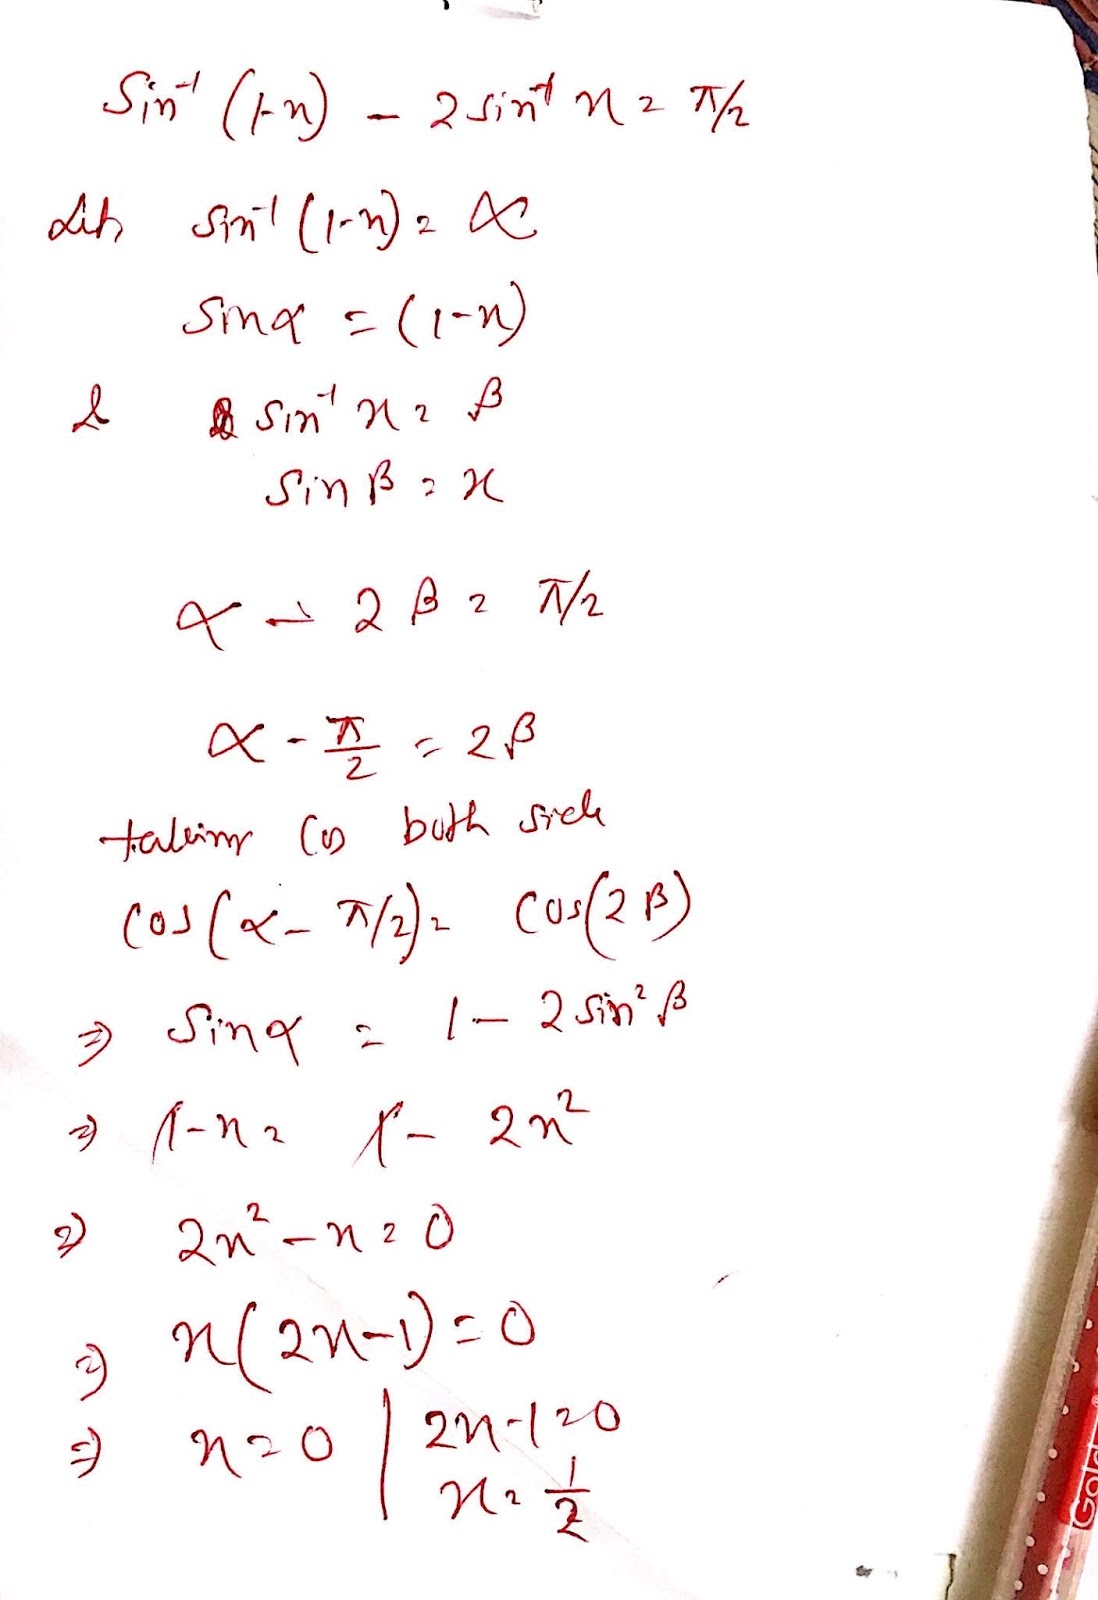 sin⁻¹ (1-x) - 2 sin⁻¹ x = π/2
Let sin⁻¹ (1-x) = α
sinα = (1-x)
& sin⁻¹ x = β
sin β = x
α - 2 β = π/2
α - π/2 = 2β
taking Cos both side
cos(α - π/2) = cos(2β)
⇒ sinα = 1 - 2 sin² β
⇒ 1-x = 1 - 2x²
⇒ 2x² - x = 0
⇒ x(2x-1) = 0
⇒ x = 0 | 2x-1 = 0
x = 1/2
Gold